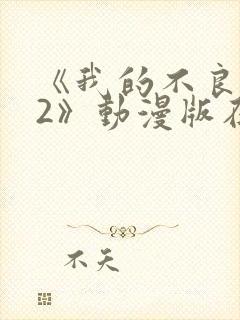 《我的不良
2》動漫版在
不天